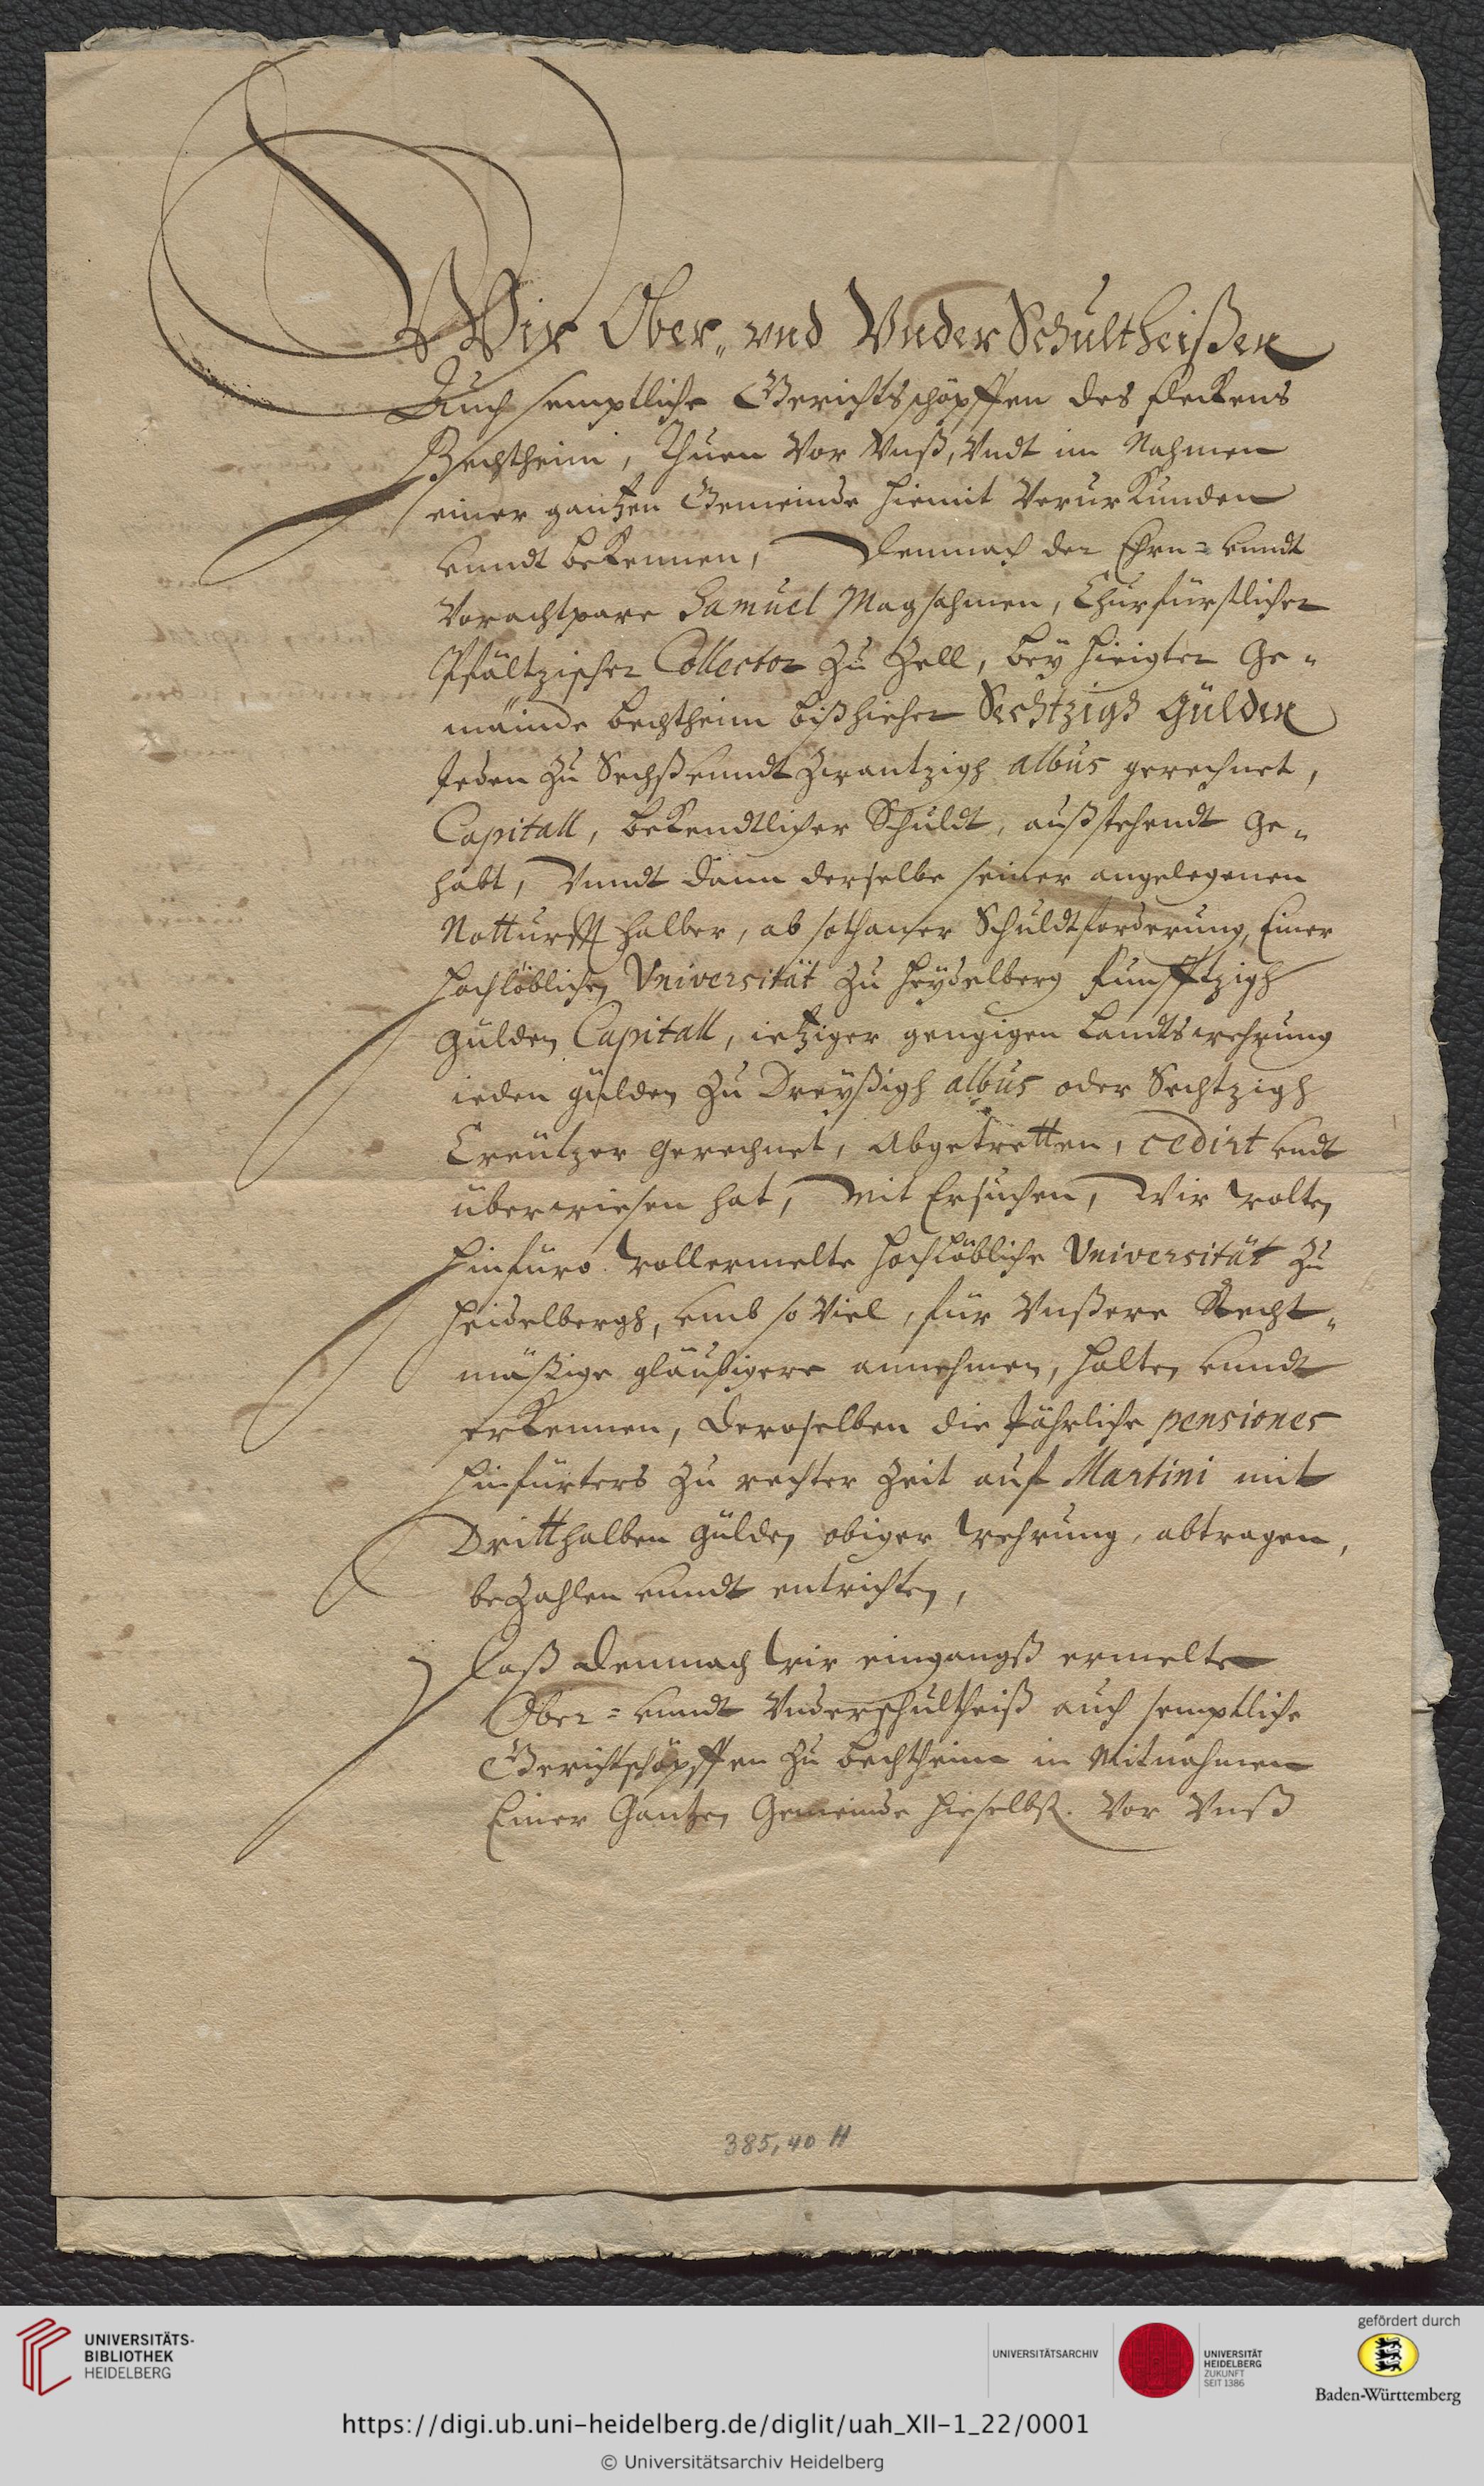 Wir Ober„ vnd Vnder Schultheißen
Auch semptliche Gerichtsschöpffen des fleckens
Bechtheim, Thuen Vor Vnß, Vndt im Nahmen
einer gantzen Gemeinde hiemit Verurkunden
vundt bekennen, Demnach der Ehrn= vundt
Vorachtpare Samuel Magsahmen, Churfürstlicher
Pfältzischer Collector zu Zell, bey hieigter Ge„
mäinde bechtheim bißhieher Sechtzigh Gülden
Jeden zu Sechßvundt Zwantzigh albus gerechnet,
Capitall, bekendtlicher Schuldt, außstehendt ge„
habt, Vnndt dann derselbe seiner angelegenen
Notturfft halber, ab sothaner Schuldtforderung, Einer
hochlöblichen Vniversität zu heydelberg funfftzigh
gulden Capitall, ietziger gengigen Landtswehrung
ieden gulden zu Dreyßigh albus oder Sechtzigh
Creutzer gerechnet, Abgetretten, cedirt vndt
überwiesen hat, Mit Ersuchen, Wir wolten
hinfüro wollermelte hochlöbliche Vniversität zu
heidelbergh, vmb so Viel, für Vnßere Recht„
mäßige gläubigere annehmen, halten vundt
erkennen, Deroselben die Jährliche pensiones
hinfürters zu rechter Zeit auf Martini mit
Dritthalben gülden obiger wehrung, abtragen,
bezahlen vundt entrichten,
Daß demnach wir eingangß ermelte
Ober= vundt Vnderschultheiß auch semptliche
Gerichtschöpffen zu bechtheim in Mitnahmen
Einer Gantzen Gemeinde hieselbst. Vor Vnß
385,40 H
UNIVERSITÄTS-
BIBLIOTHEK
HEIDELBERG
UNIVERSITÄTSARCHIV
UNIVERSITÄT
HEIDELBERG
ZUKUNFT
SEIT 1386
gefördert durch
Baden-Württemberg
https://digi.ub.uni-heidelberg.de/diglit/uah_XII-1_22/0001
© Universitätsarchiv Heidelberg